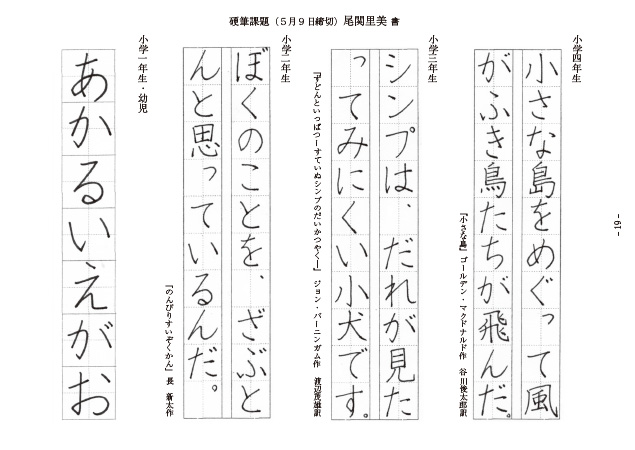 硬筆課題（５月９日締切）尾関里美 書
小学四年生
小さな島をめぐって風
がふき鳥たちが飛んだ。
『小さな島』ゴールデン・マクドナルド作　谷川俊太郎訳
小学三年生
シンプは、だれが見た
ってみにくい小犬です。
『ずどんといっぱつーすていぬシンプのだいかつやくー』ジョン・バーニンガム作　渡辺茂雄訳
小学二年生
ぼくのことを、ざぶと
んと思っているんだ。
『のんびりすいぞくかん』長　新太作
小学一年生・幼児
あかるいえがお
-19-